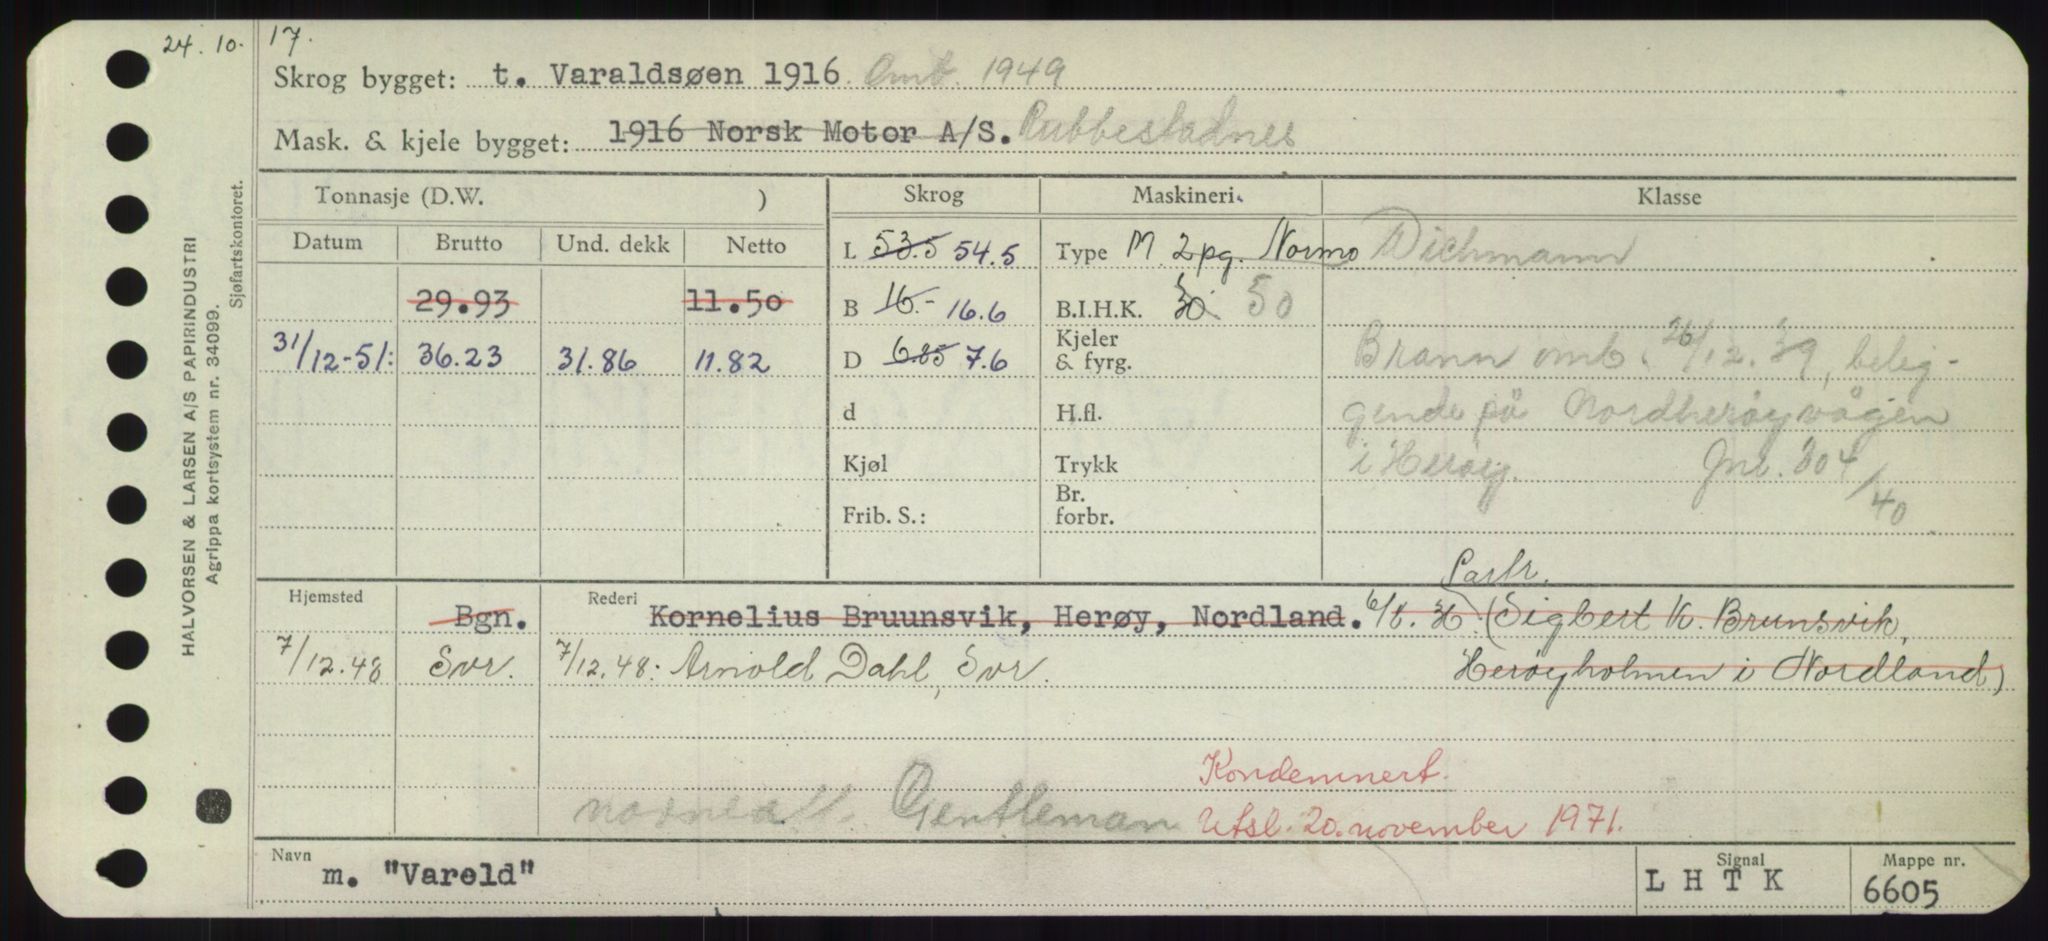 24. 10. 17.
Skrog bygget: t. Varaldsøen 1916. Omb. 1949
Mask. & kjele bygget: 1916 Norsk Motor A/S. Rubbestadnes
Tonnasje (D.W. ) Skrog Maskineri Klasse
Datum Brutto Und. dekk Netto L 53.5 54.5 Type M. 2 pg. Normo Wichmann
29.93 11.50 B 16.- 16.6 B.I.H.K. 30. 50
31/12-51: 36.23 31.86 11.82 D 6.85 7.6 Kjeler & fyrg. Brann omb. 26/12.39, belig-
d H.fl. gende på Nordherøyvågen
Kjøl Trykk i Herøy. Jnl. 304/40
Frib. S.: Br. forbr.
Hjemsted Bgn. Rederi Kornelius Bruunsvik, Herøy, Nordland. Partr. (Sigbert K. Brunsvik,
7/12.48 Svr. 7/12.48: Arnold Dahl, Svr. Herøyholmen i Nordland)
Kondemnert.
Gentleman Utsl. 20. november 1971.
Navn m. "Varold" Signal L H T K Mappe nr. 6605
HALVORSEN & LARSEN A/S PAPIRINDUSTRI
Agrippa kortsystem nr. 34099.
Sjøfartskontoret.